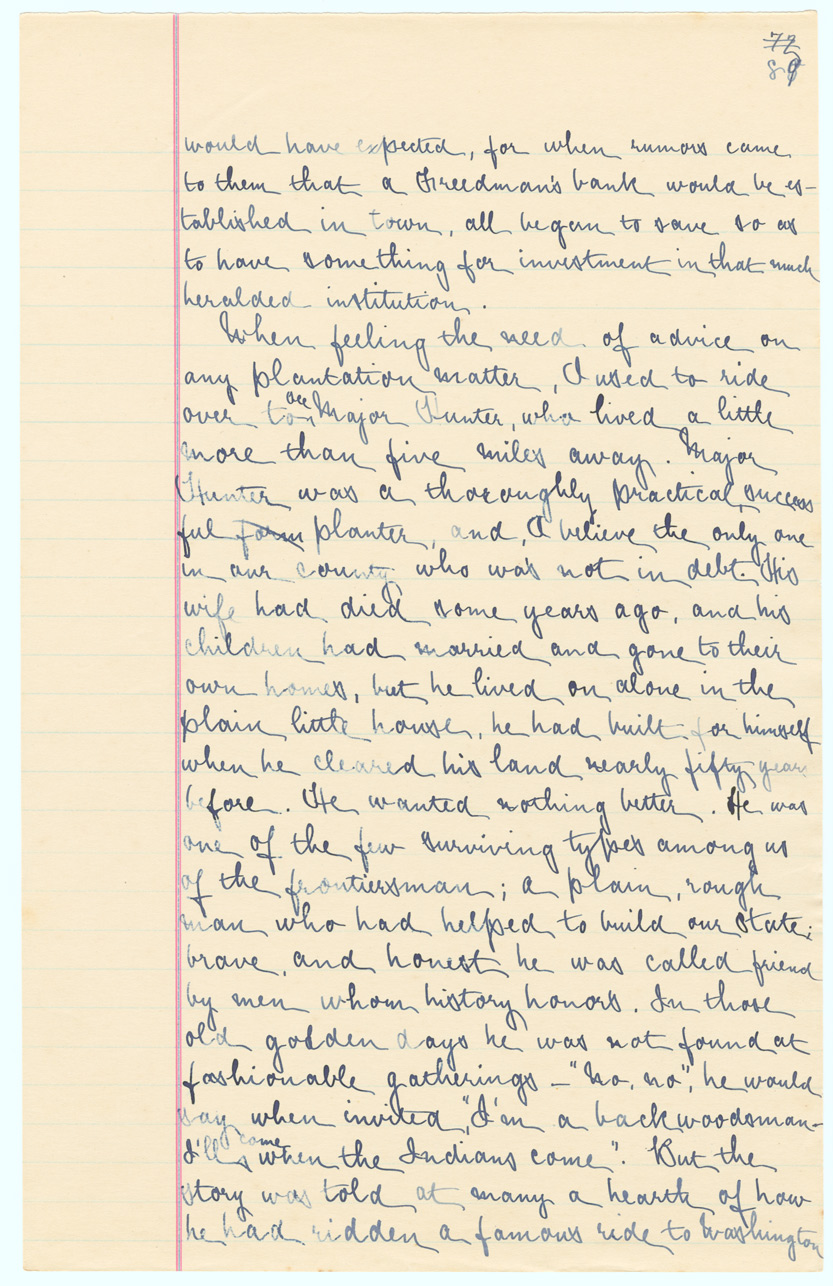 72
89
would have expected, for when rumors came
to them that a Freedman's bank would be es-
tablished in town, all began to save so as
to have something for investment in that much
heralded institution.
When feeling the need of advice on
any plantation matter, I used to ride
over to see Major Hunter, who lived a little
more than five miles away. Major
Hunter was a thoroughly practical, success
ful farm planter, and, I believe the only one
in our county who was not in debt. His
wife had died some years ago, and his
children had married and gone to their
own homes, but he lived on alone in the
plain little house, he had built for himself
when he cleared his land nearly fifty years
before. He wanted nothing better. He was
one of the few surviving types among us
of the frontiersman; a plain, rough
man who had helped to build our State;
brave, and honest he was called friend
by men whom history honors. In those
old golden days he was not found at
fashionable gatherings — "No, no", he would
say when invited, "I'm a backwoodsman-
I'll come when the Indians come". But the
story was told at many a hearth of how
he had ridden a famous ride to Washington